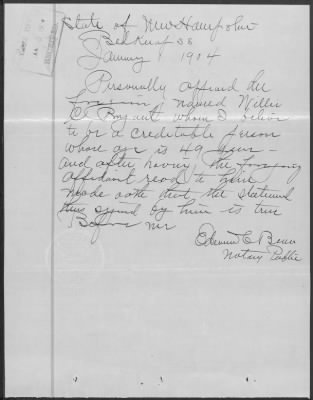 State of New Hampshire
Belknap SS
January 1904
Personally appeared the
foregoin named Willie
C. Bryant whom I believe
to be a creditable person
whose age is 49 years
and after having the foregoing
affidavit read to him
made oath that the statement
signed by him is true
Before me
Edwin C Bean
Notary Public